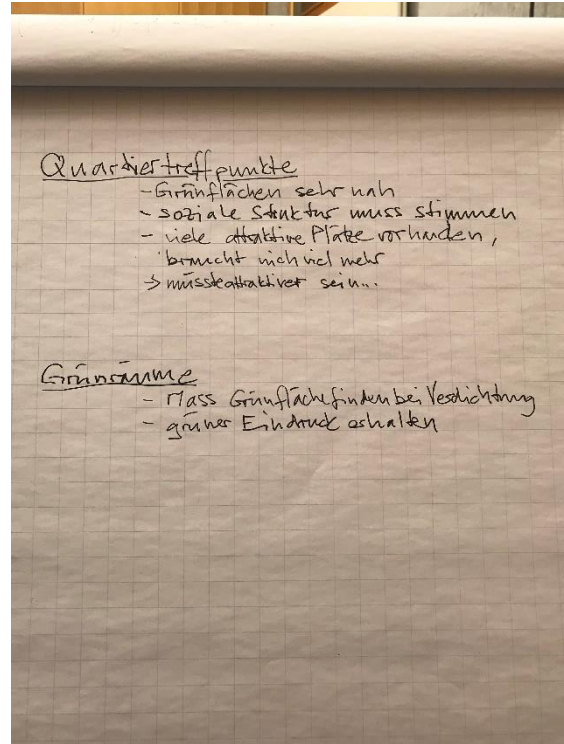 Quartiertreffpunkte
- Grünflächen sehr nah
- soziale Struktur muss stimmen
- viele attraktive Plätze vorhanden,
braucht nich viel mehr
-> müsste attraktiver sein...
Grünräume
- Mass Grünfläche finden bei Verdichtung
- grüner Eindruck erhalten